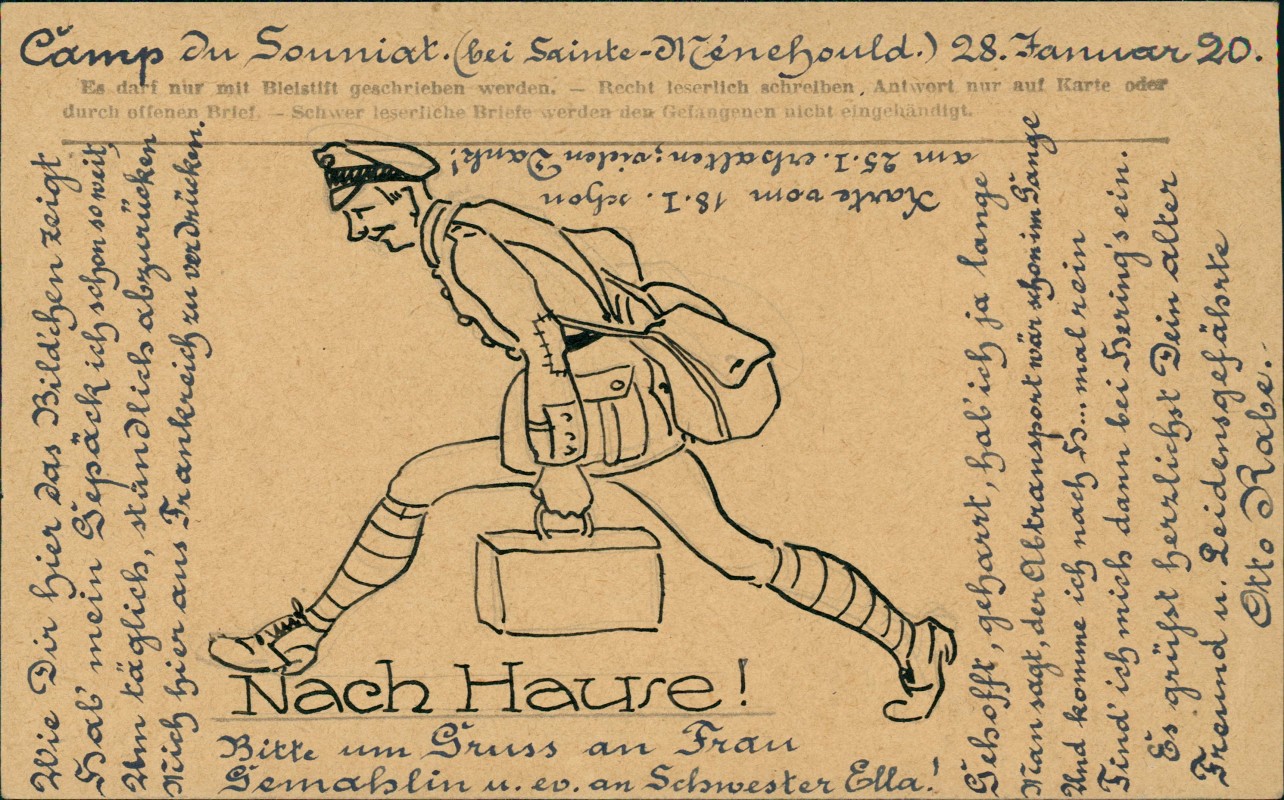 Camp du Souniat. (bei Sainte-Ménehould.) 28. Januar 20.
Es darf nur mit Bleistift geschrieben werden. — Recht leserlich schreiben. Antwort nur auf Karte oder
durch offenen Brief. — Schwer leserliche Briefe werden den Gefangenen nicht eingehändigt.
Wie Dir hier das Bildchen zeigt
Hab' mein Gepäck ich schon soweit,
Um täglich, stündlich abzurücken
Mich hier aus Frankreich zu verdrücken.
Gehofft, geharrt, hab' ich ja lange
Man sagt, der Abtransport wär schon im Gange
Und komme ich nach H... mal rein
Find' ich mich dann bei Hering's ein.
Es grüßt herzlichst Dein alter
Freund u. Leidensgefährte
Otto Rabe.-
Karte vom 18.I. schon
am 25.I. erhalten; vielen Dank!
Nach Hause!
Bitte um Gruss an Frau
Gemahlin u. ev. an Schwester Ella!